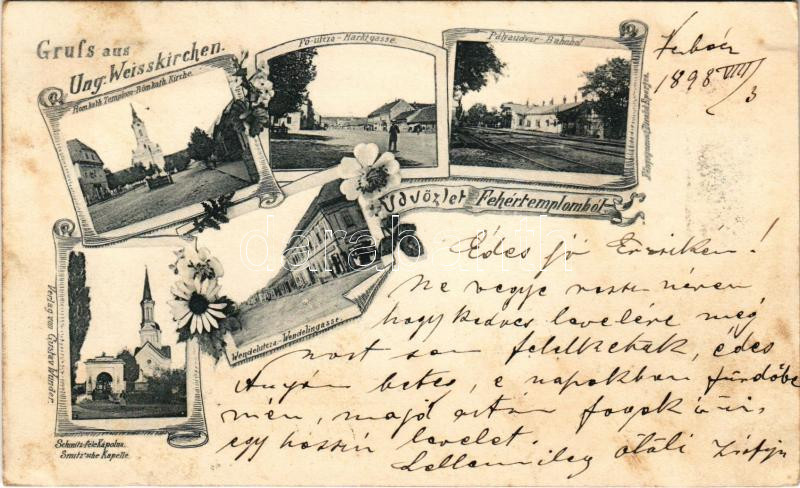 Gruss aus
Ung. Weisskirchen.
Röm.kath. Templom - Röm.kath. Kirche.
Fő-utcza - Marktgasse.
Pályaudvar - Bahnhof
1898 VIII/3
Üdvözlet Fehértemplomból
Wendelutcza - Wendelingasse.
Verlag von Gustav Wunder.
Schmitz-féle Kápolna.
Smitz'sche Kapelle.
darabanth
Édes jó Erzsikém!
Ne vegye rossz néven
hogy kedves levelére még
most sem felelhetek, édes
Anyám beteg, e napokban fürdőbe
mén, majd aztán fogok írni
egy hosszú levelet.